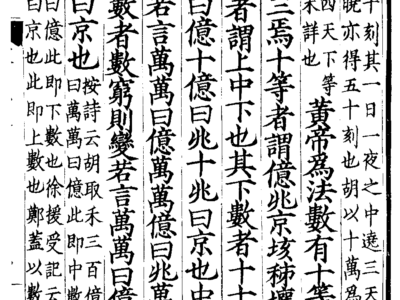 十刻其一日一夜之中遶三天
晚亦得五十刻也胡以十萬爲
四天下等
未詳也
黃帝爲法數有十等
三焉十等者謂億兆京垓秭壤
者謂上中下也其下數者十十
曰億十億曰兆十兆曰京也中
若言萬萬曰億萬萬億曰兆萬
數者數窮則變若言萬萬曰億
曰京也
按詩云胡取禾三百億
曰萬萬曰萬萬億此即中數
曰億此即下數也徐援受記云
曰京也此即上數也鄭蓋以數